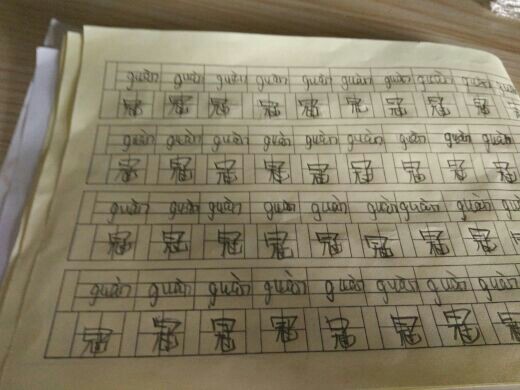 guàn guàn guàn guàn guàn guàn guàn guàn guàn guàn
冠 冠 冠 冠 冠 冠 冠 冠 冠
guàn guàn guàn guàn guàn guàn guàn guàn guàn
冠 冠 冠 冠 冠 冠 冠 冠 冠
guàn guàn guàn guàn guàn guàn guàn guàn guàn
冠 冠 冠 冠 冠 冠 冠 冠 冠
guàn guàn guàn guàn guàn guàn guàn guàn
冠 冠 冠 冠 冠 冠 冠 冠